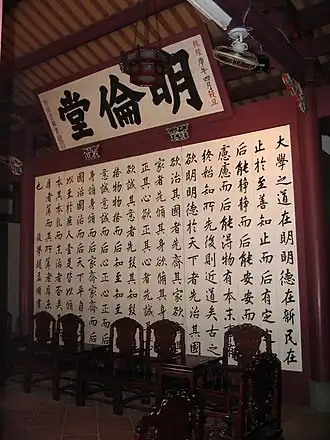 明倫堂
庚午四月穀旦
大學之道在明明德在新民在
止於至善知止而后有定定而
后能靜靜而后能安安而后能
慮慮而后能得物有本末事有
終始知所先後則近道矣古之
欲明明德於天下者先治其國
欲治其國者先齊其家欲齊其
家者先脩其身欲脩其身者先
正其心欲正其心者先誠其意
欲誠其意者先致其知致知在
格物物格而后知至知至而后
意誠意誠而后心正心正而后
身脩身脩而后家齊家齊而后
國治國治而后天下平自天子
以至於庶人壹是皆以脩身為
本其本亂而末治者否矣其所
厚者薄而其所薄者厚未之有
也 後學趙孟頫書